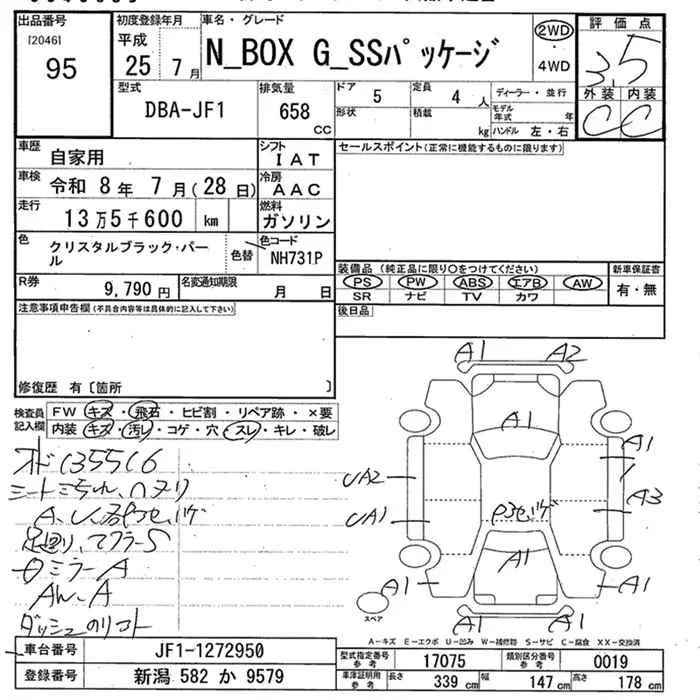 出品番号
[2046]
95
初度登録年月
平成
25 7月
車名・グレード
N_BOX G_SSパッケージ
2WD
・
4WD
評価点
3.5
外装 内装
C C
型式
DBA-JF1
排気量
658
CC
ドア 5
定員 4 人
形状
積載 kg
ディーラー・並行
モデル年式 年
ハンドル 左・右
車歴
自家用
シフト
IAT
車検
令和 8年 7月(28日)
冷房
AAC
走行
13万5千600 km
燃料
ガソリン
色
クリスタルブラック・パール
色替
色コード
NH731P
R券
9,790円
名変通知期限
月 日
セールスポイント(正常に機能するものに限ります)
装備品 (純正品に限り○をつけてください)
PS PW ABS エアB AW
SR ナビ TV カワ
新車保証書
有・無
後日品
注意事項申告欄(不具合内容等は具体的に記入して下さい)
修復歴 有〔箇所 〕
検査員
記入欄
FW キズ・飛石・ヒビ割・リペア跡・×要
内装 キズ・汚レ・コゲ・穴・スレ・キレ・破レ
オド135516
A、U、
足廻り、マフラーS
ミラーA
AW-A
ダッシュ
A1 A2
A1
A1
UA2
A3
UA1
A1
A1
A1
A1 A1
スペア
A-キズ E-エクボ U-凹み W-補修跡 S-サビ C-腐食 XX-交換済
車台番号
JF1-1272950
登録番号
新潟 582 か 9579
型式指定番号
参考
17075
類別区分番号
参考
0019
車庫証明用
参考
長さ 339 cm
幅 147 cm
高さ 178 cm